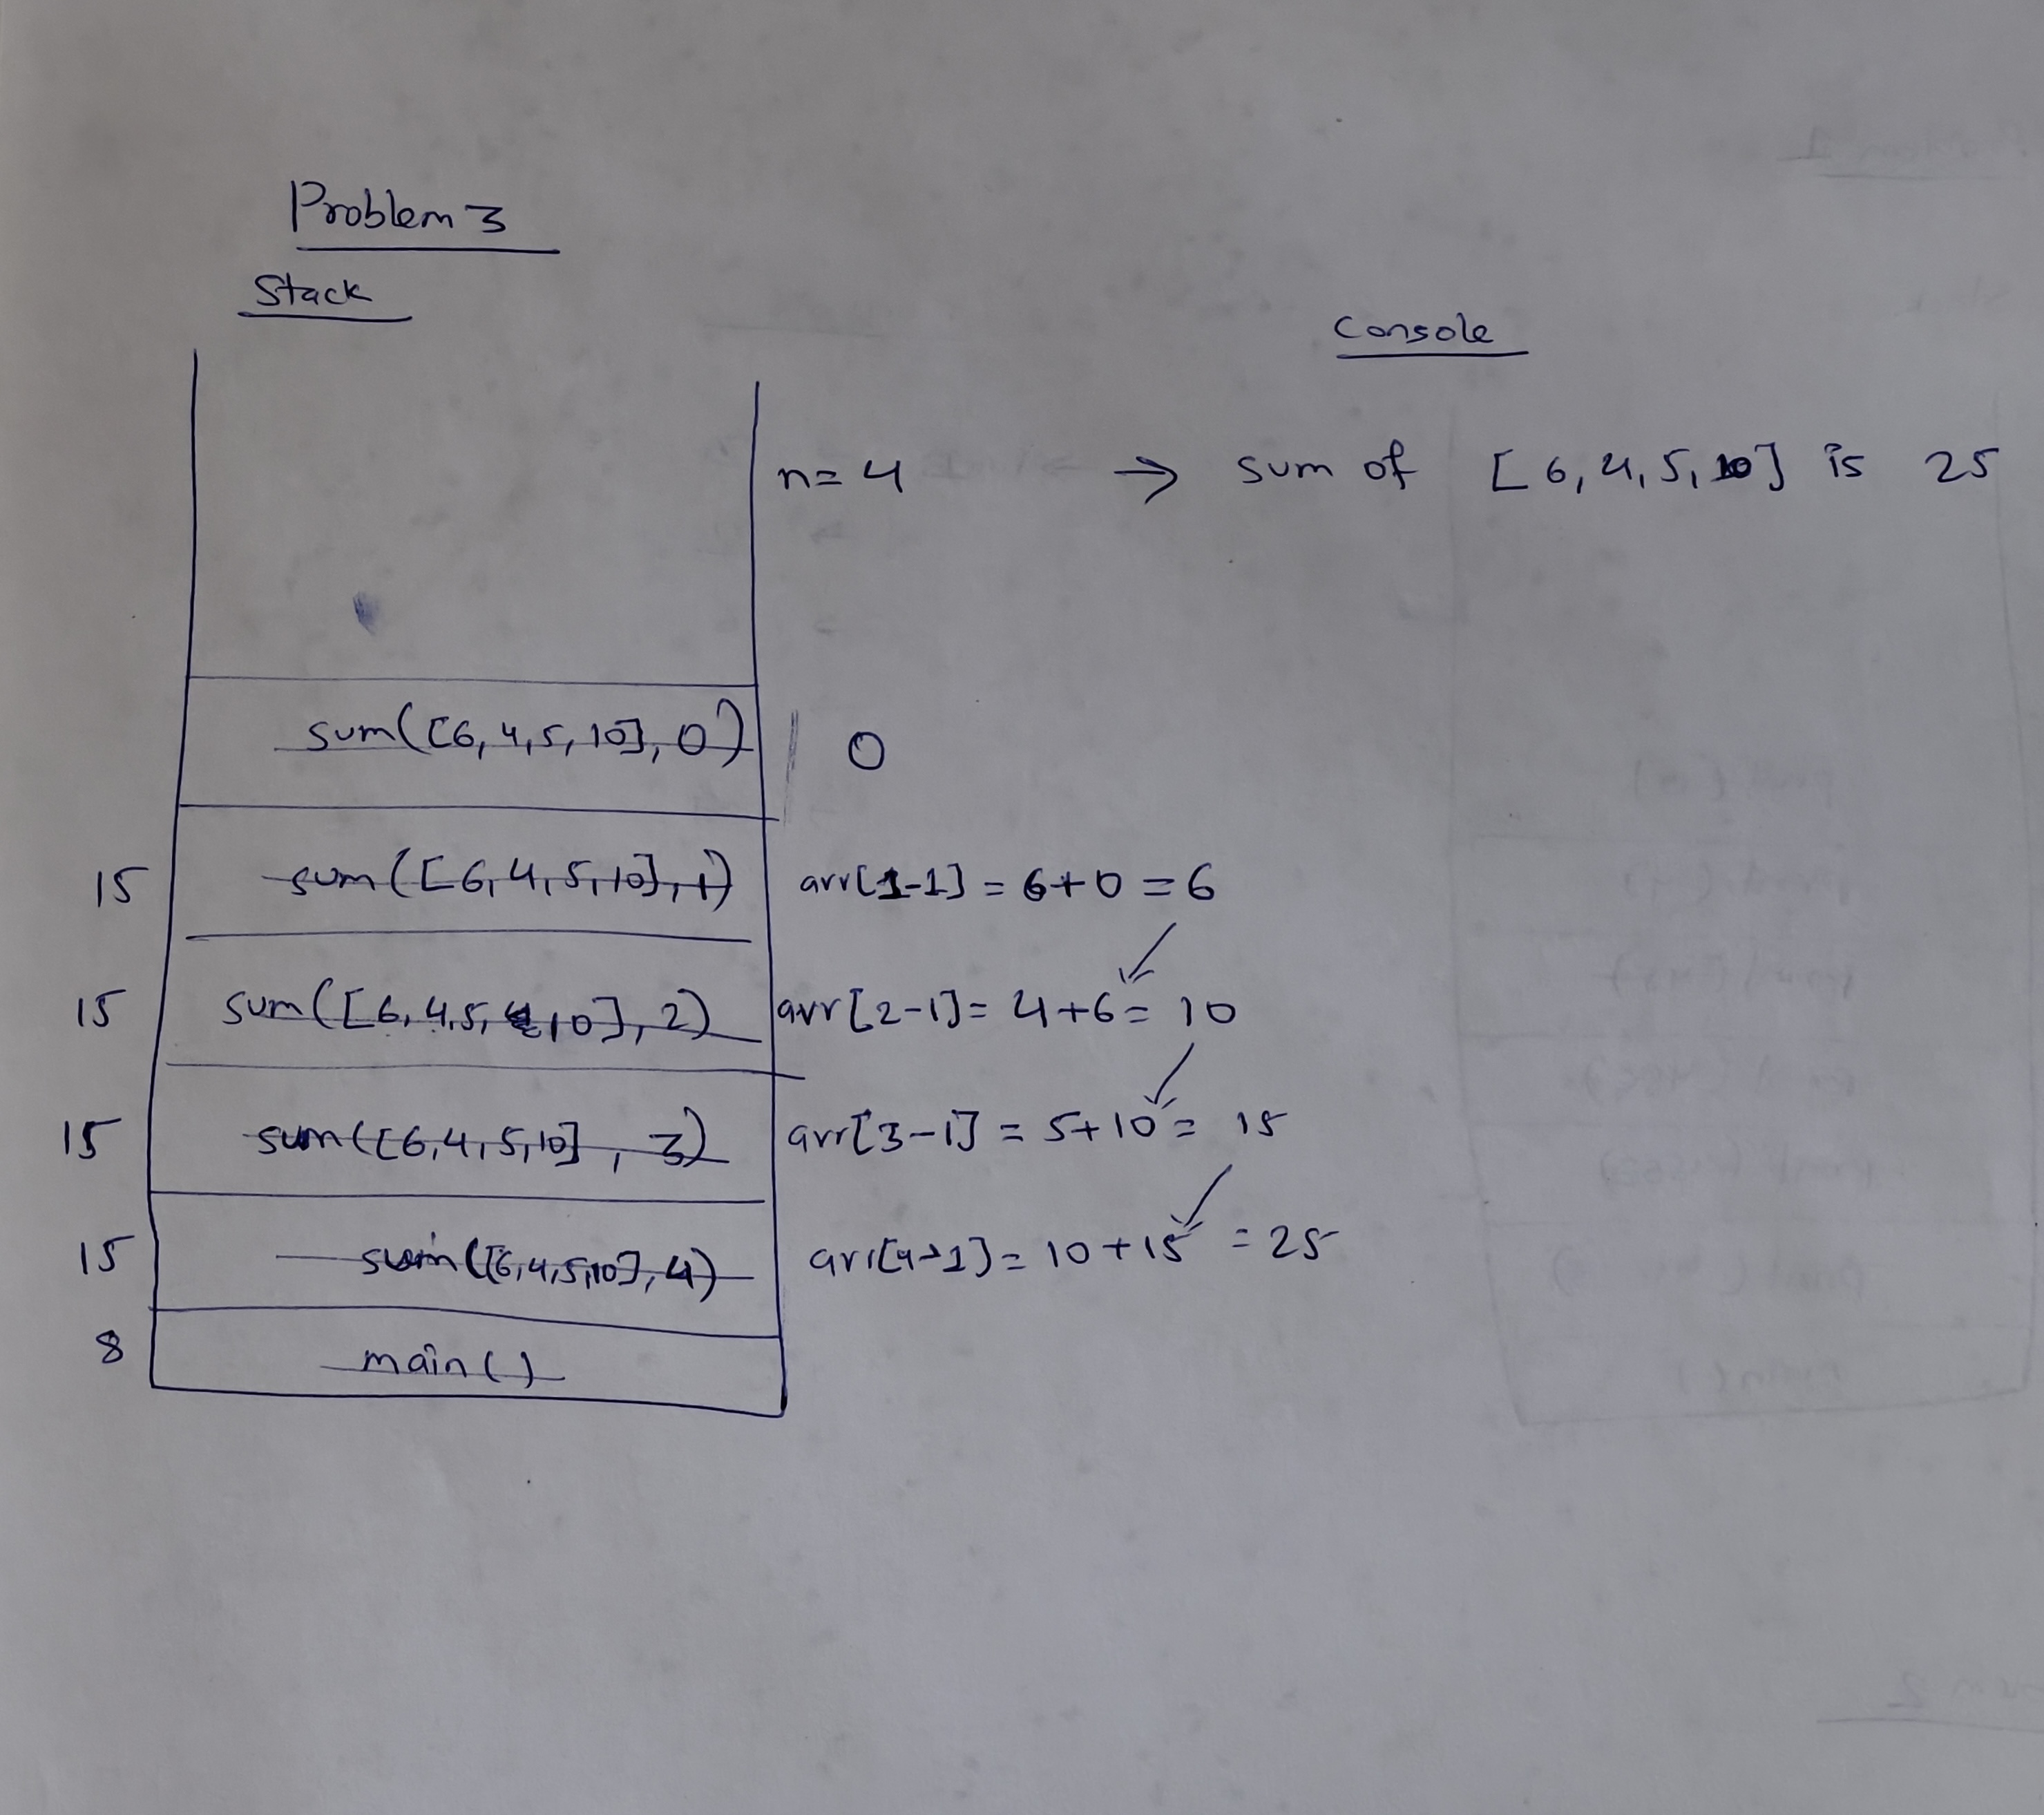 Problem 3
Stack
Console
n=4 → sum of [6,4,5,10] is 25
sum([6,4,5,10],0) 0
15 sum([6,4,5,10],1) arr[1-1] = 6+0 = 6
15 sum([6,4,5,10],2) arr[2-1] = 4+6 = 10
15 sum([6,4,5,10],3) arr[3-1] = 5+10 = 15
15 sum([6,4,5,10],4) arr[4-1] = 10+15 = 25
8 main()